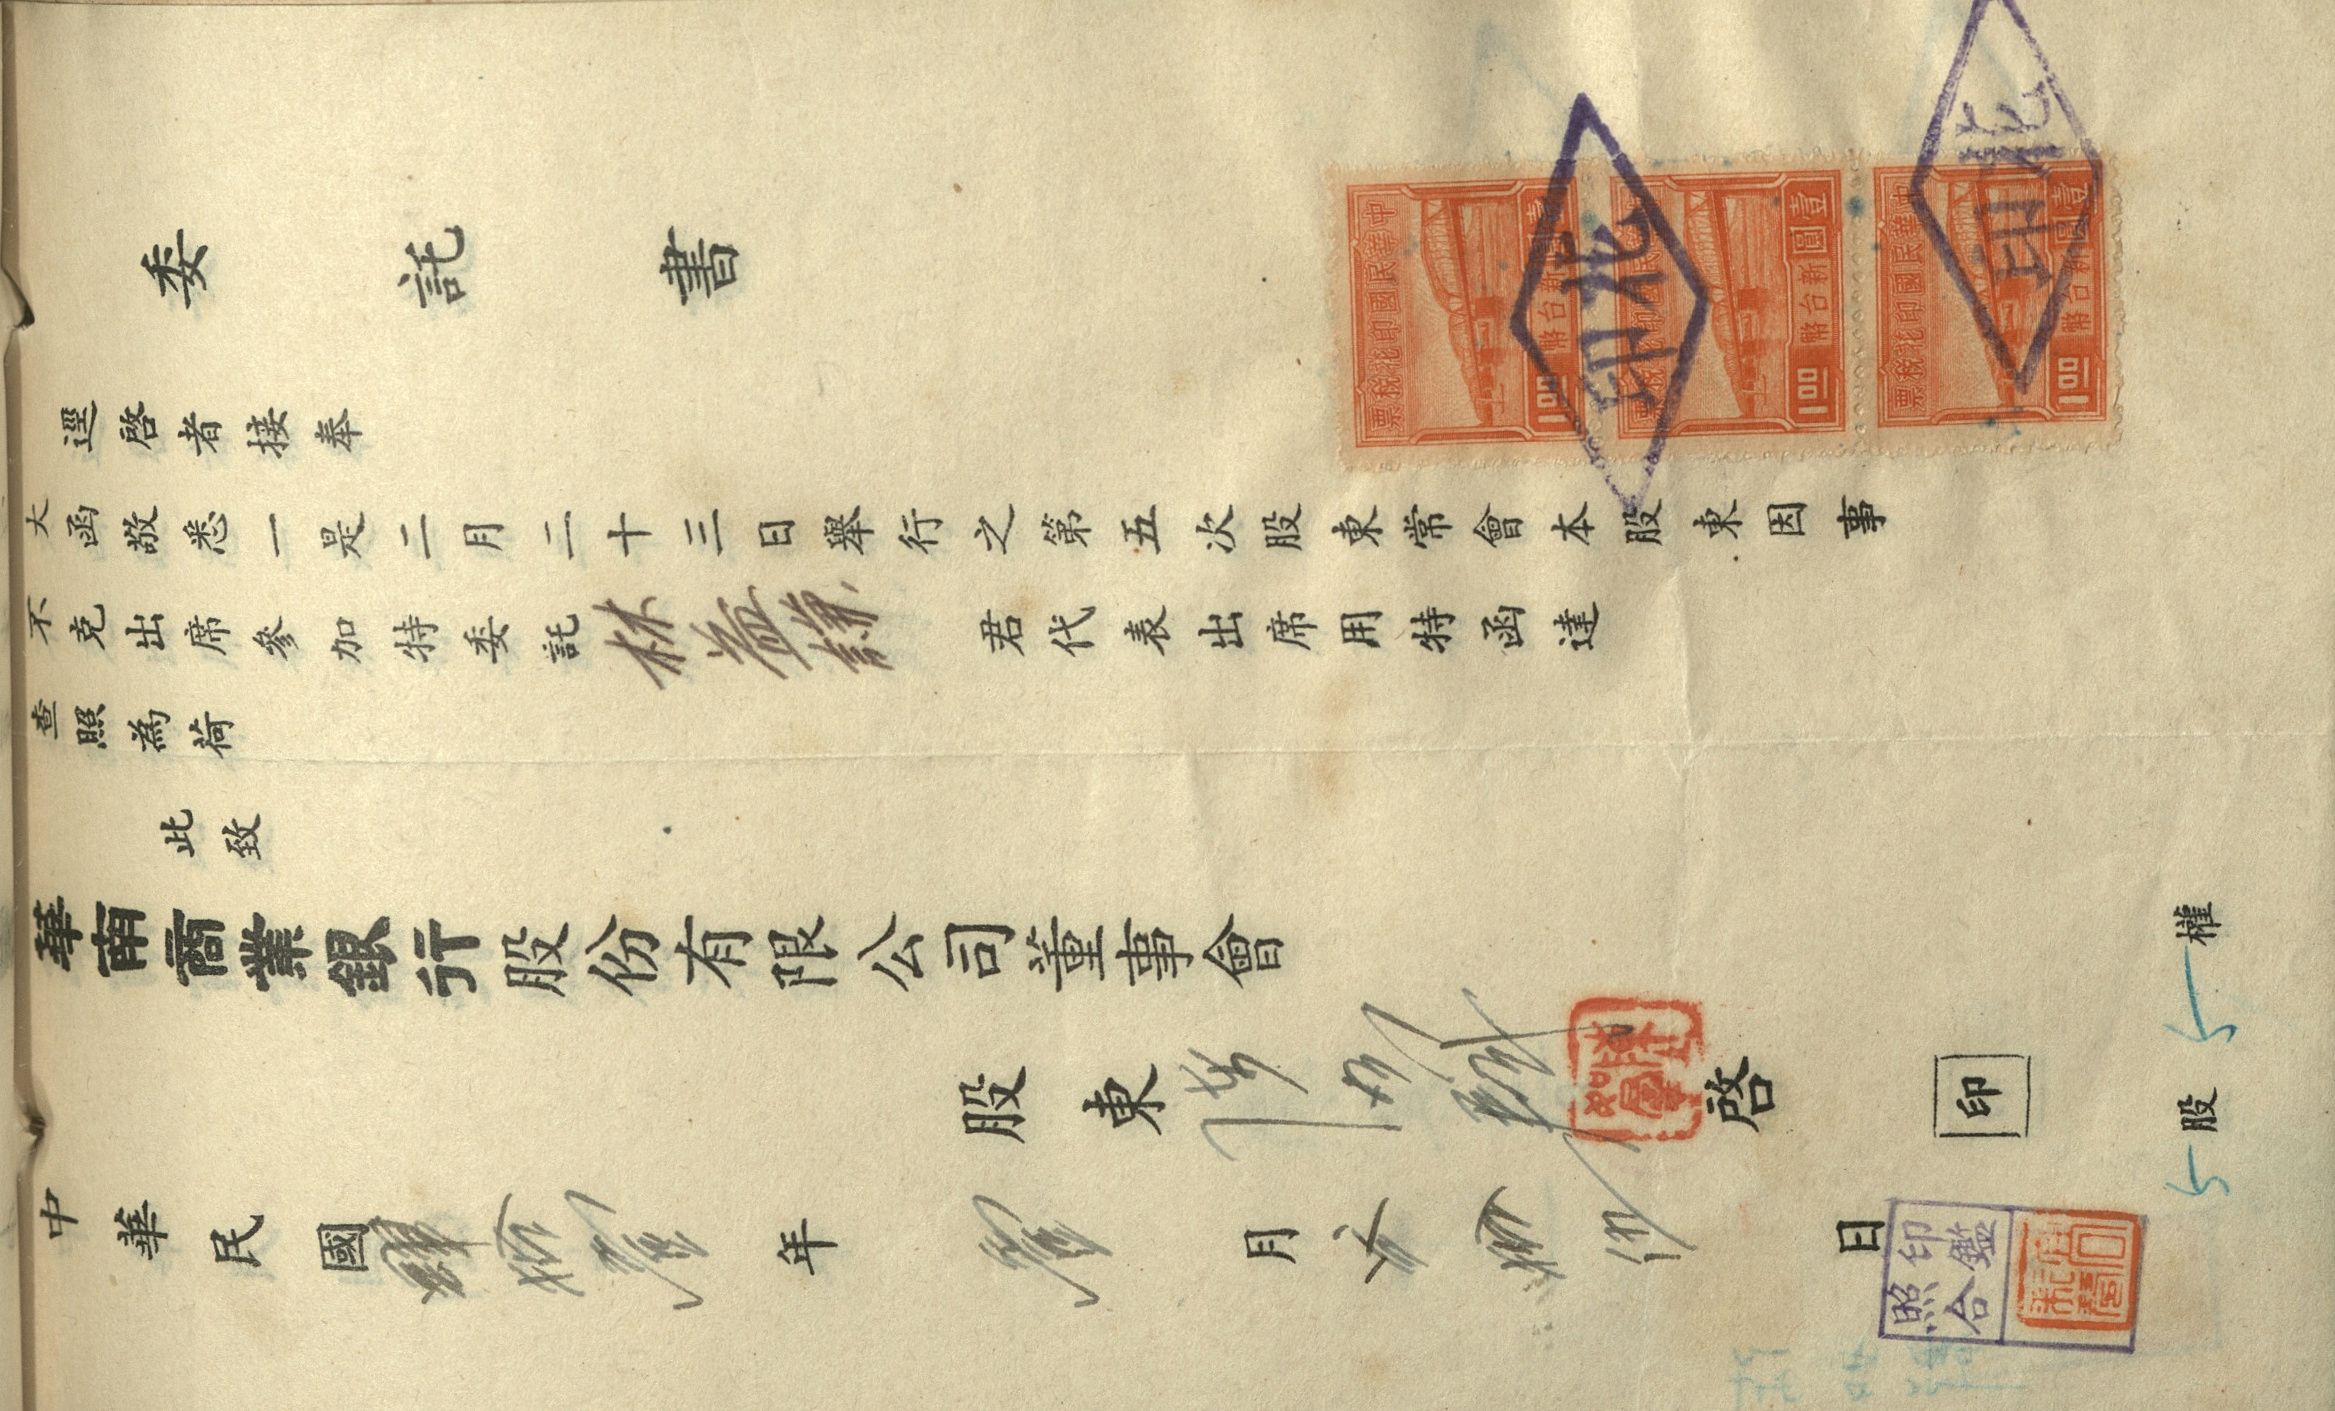 委託書
逕啓者接奉
大函敬悉一是二月二十三日舉行之第五次股東常會本股東因事
不克出席參加特委託林益謙君代表出席用特函達
查照為荷
此致
華南商業銀行股份有限公司董事會
股東 啓
印
中華民國肆拾壹年壹月 日
5股5權
印鑑
照合
中華民國印花稅票
壹圓
新台幣
1.00
中華民國印花稅票
壹圓
新台幣
1.00
中華民國印花稅票
壹圓
新台幣
1.00
北印
北印